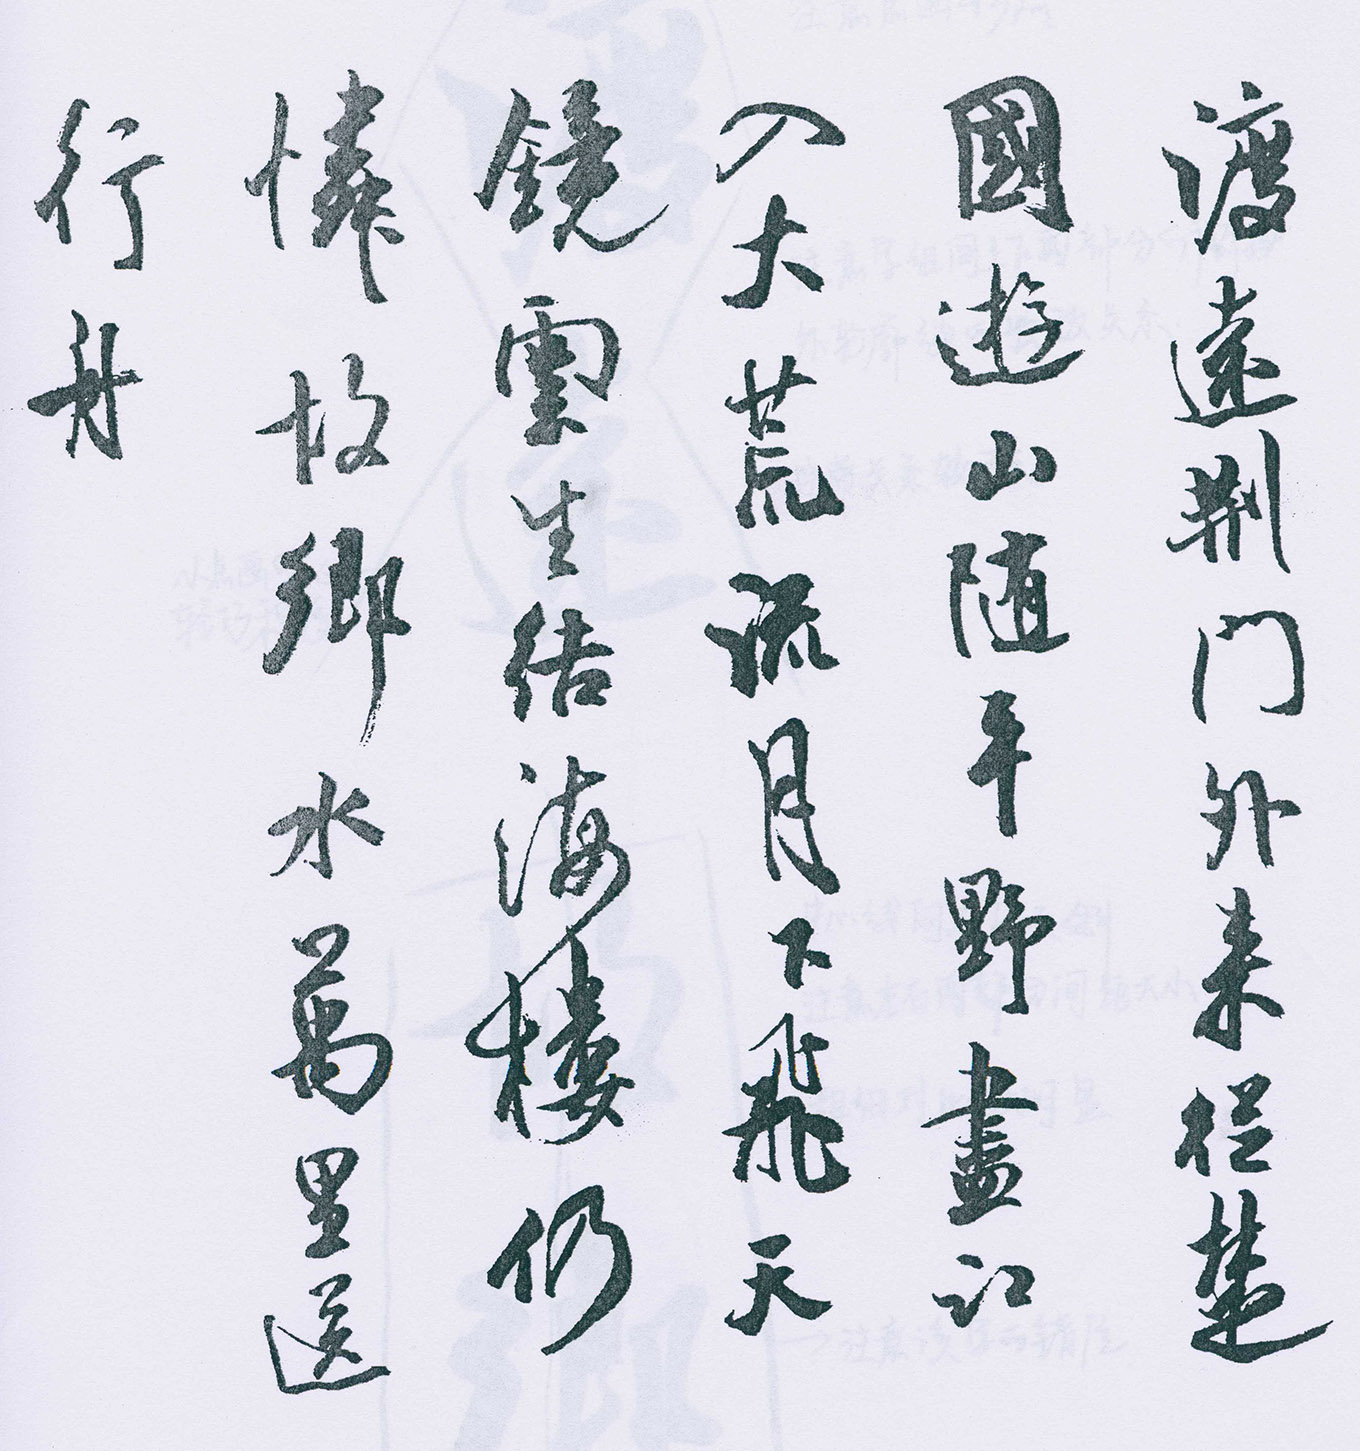 渡遠荊門外来從楚
國遊山随平野盡江
入大荒流月下飛天
鏡雲生結海樓仍
憐故鄉水萬里送
行舟